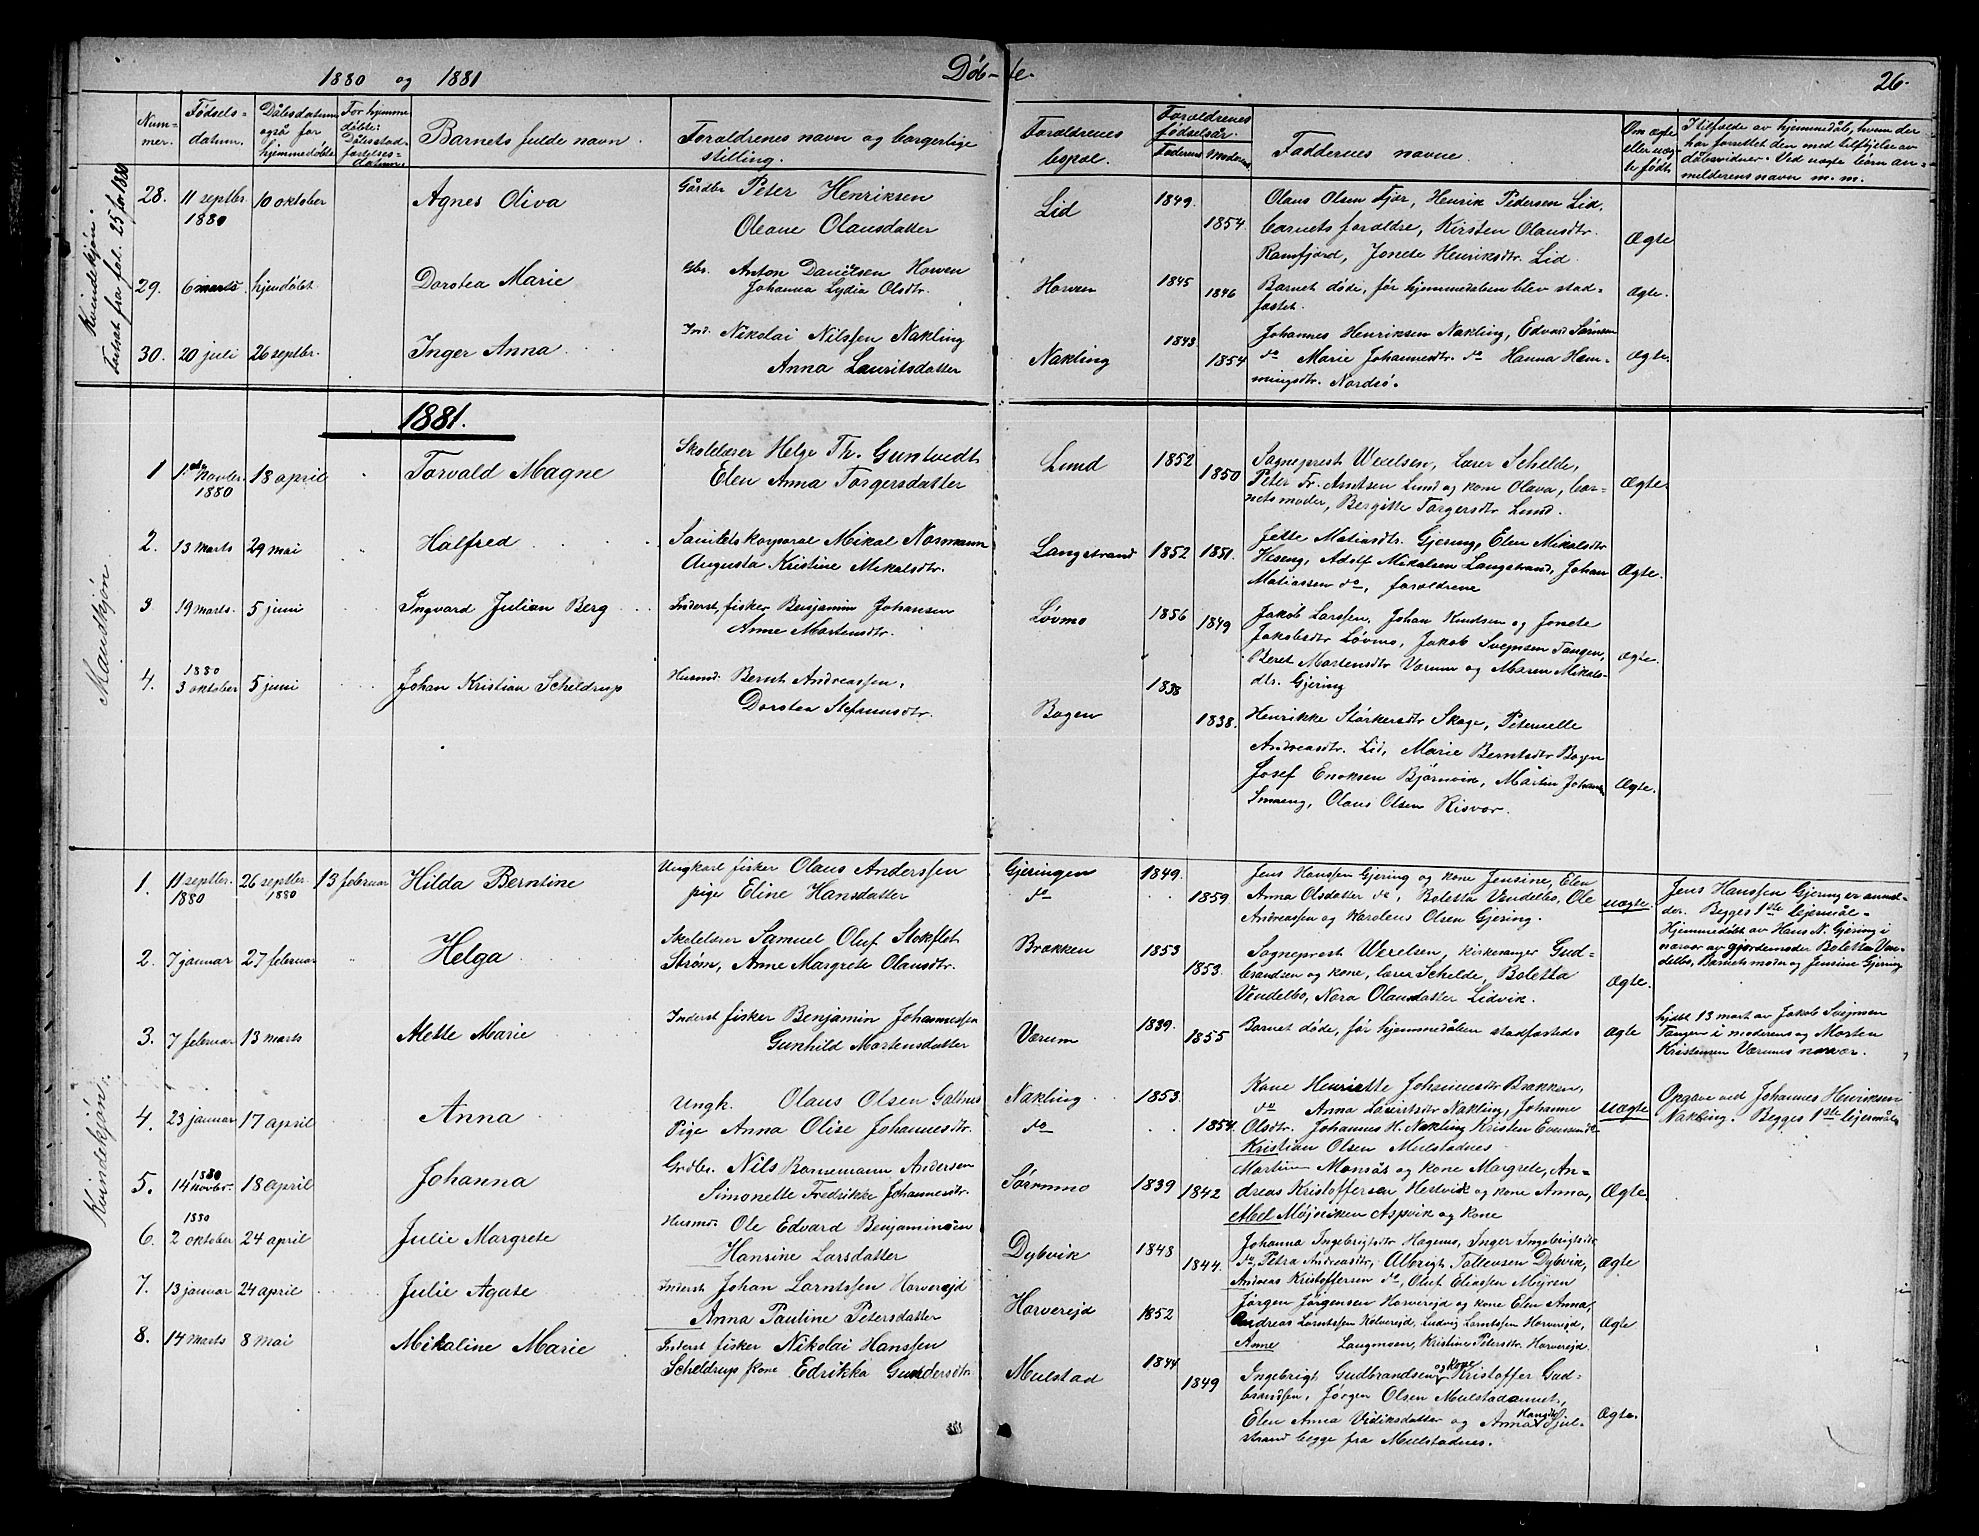 1880 og 1881
Døb-te.
26.
Num-
mer.
Fødsels-
datum.
Dåbsdatum
også for
hjemmedøbte
For hjemme
døbte:
Dåbsstad-
fæstelses-
datum.
Barnets fulde navn
Forældrenes navn og borgerlige
stilling.
Forældrenes
bopæl.
Forældrenes
fødselsår.
Faderens
Moderens
Faddernes navne.
Om ægte
eller uæg-
te født.
I tilfælde av hjemmedåb, hvem der
har forrettet den med tilføielse av
dåbsvidner. Ved uægte børn an-
melderens navn m. m.
Kvindekjøn.
Fortsat fra fol. 25 for 1880
28. 11 septbr. 1880 10 oktober Agnes Oliva
Gårdbr Peter Henriksen
Oleane Olausdatter
Lid 1849. 1854.
Olaus Olsen Fjær, Henrik Pedersen Lid,
barnets forældre, Kirsten Olausdtr.
Ramfjord, Jonete Henriksdtr. Lid.
Ægte
29. 6 marts. hjemdøbt Dortea Marie
Gbr. Anton Danielsen Horven
Johanna Lydia Olsdtr.
Horven 1845 1846
Barnet døde, før hjemmedåben blev stad-
fæstet.
Ægte.
30. 20 juli 26 septbr. Inger Anna
Ind. Nikolai Nilssen Nakling
Anna Lauritsdatter
Nakling 1843 1854
Johannes Henriksen Nakling, Edvard Sørensen
do Marie Johannesdtr. do Hanna Hem-
mingsdtr. Nordsø.
Ægte.
1881.
Mandkjøn
1 1. Novbr. 1880 18 april Torvald Magne
Skolelærer Helge Th. Guntvedt
Elen Anna Torgersdatter
Lund 1852 1850
Sogneprest Wexelsen, Lærer Schelde,
Peter Fr. Arntsen Lund og kone Olava, bar-
nets moder, Bergitte Torgersdtr Lund.
Ægte.
2. 13 Marts 29 mai Halfred
Sanitetskorporal Mikal Normann
Augusta Kristine Mikalsdtr.
Langstrand 1852 1851.
Jette Matiasdtr. Gjering, Elen Mikalsdtr
Heseng, Adolf Mikalsen Langstrand, Johan
Matiassen do, forældrene
Ægte.
3 19 marts. 5 juni Ingvard Julian Berg
Inderst, fisker Benjamin Johansen
Anne Martensdtr.
Løvmo 1856 1849
Jakob Larssen, Johan Knudsen og Jonete
Jakobsdtr Løvmo, Jakob Svejnsen Tangen,
Beret Martensdtr Værum og Maren Mikals-
dtr. Gjering
Ægte.
4. 1880 3 oktober 5 juni Johan Kristian Scheldrup
Husmd. Bernt Andreassen.
Dortea Stefanusdtr.
Bogen 1838 1838.
Henrikke Størkersdtr Skage, Peternelle
Andreasdtr. Lid, Marie Berntsdtr Bogn
Josef Enoksen Bjørnvik, Mårtin Johans.
Smaeng, Olaus Olsen Risvær.
Ægte.
Kvindekjøn.
1. 11 septbr. 1880 26 septbr 1880 13 februar Hilda Berntine
Ungkarl fisker Olaus Anderssen
pige Eline Hansdatter
Gjeringen
do
1849. 1859.
Jens Hanssen Gjering og kone Jensine, Elen
Anna Olsdatter do, Boletta Vendelbo, Ole
Andreassen og Karolius Olsen Gjering.
uægte.
Jens Hanssen Gjering er anmel-
der. Begges 1ste lejermål-
Hjemmedøbt av Hans N. Gjering i
nærvær av gjordemoder Boletta Ven-
delbo, Barnets moder og Jensine Gjering
2. 7 januar 27 februar Helga
Skolelærer Samuel Oluf Stokflet
Strøm, Anne Margrete Olausdtr.
Brakken 1853 1853.
Sogneprest Wexelsen, kirkesanger Gud-
brandsen og kone, lærer Schelde, Boletta
Vendelbo, Nora Olausdatter Lidvik.
Ægte.
3. 7 februar 13 marts Mette Marie
Inderst fisker Benjamin Johannessen
Gunhild Mortensdatter
Værum 1839. 1855
Barnet døde, før hjemmedåben stadfæstedes
Ægte
hjdbt 13 mart av Jakob Svejnsen
Tangen i moderens og Morten
Kristensen Værums nærvær.
4. 23 januar 17 april Anna
Ungk. Olaus Olsen Galtnes
Pige Anna Olise Johannesdtr.
Nakling.
do
1853. 1854.
Kone Henriette Johannesdtr Brakken,
do Anna Lauritsdtr Nakling, Johanne
Olsdtr. Johannes H. Nakling Kristen Evensen
Kristian Olsen Mulstadnes
uægte
Opgave ved Johannes Henriksen
Nakling. Begges 1ste lejermål
5. 1880 14 Novbr. 18 april Johanna
Grdbr. Nils Bornemann Andersen
Simonette Fredrikke Johannesdtr.
Sørmmo 1839 1842
Martin Monsås og kone Margrete, An-
dreas Kristoffersen, Hestvik og kone Anna,
Abel Møjniken Aspvik og kone
Ægte
6. 1880 2 oktober 24 april Julie Margrete
Husmd. Ole Edvard Benjaminsen
Hansine Larsdatter
Dybvik 1848 1844.
Johanna Ingebrigtsdtr Hagemo, Inger Ingebrigtsdtr
do, Petra Andreasdtr, Albrigt Tollevsen Dybvik,
Andreas Kristoffersen do, Oluf Eliassen Myren
Ægte
7. 13 januar 24 april Julie Agate
Inderst Johan Larntssen Horverejd
Anna Pauline Petersdatter
Horverejd 1852
Jørgen Jørgensen Horverejd og kone Elen Anna,
Andreas Larntssen Kolverejd, Ludvig Larntssen Horverejd,
Anne Langmoen, Kristine Petersdtr. Horverejd.
Ægte
8. 14 marts 8 mai Mikaline Marie
Inderst fisker Nikolai Hanssen
Scheldrup kone Edrikka Gundersdtr.
Mulstad 1844 1849
Ingebrigt Gudbrandsen og kone Kristoffer Gud-
brandssen, Jørgen Olsen Mulstadannet,
Elen Anna Vidiksdatter og Anna Hansdtr Sjul-
strand begge fra Mulstadnes.
Ægte.